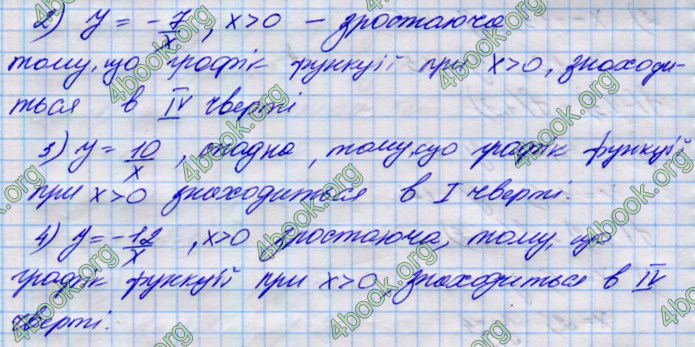 2) y = -7/x, x>0 – зростаюча
тому, що графік функції при x>0, знаходи-
ться в IV чверті
3) y = 10/x, спадна, тому, що графік функції
при x>0 знаходиться в I чверті.
4) y = -12/x, x>0 зростаюча, тому, що
графік функції при x>0, знаходиться в IV
чверті.